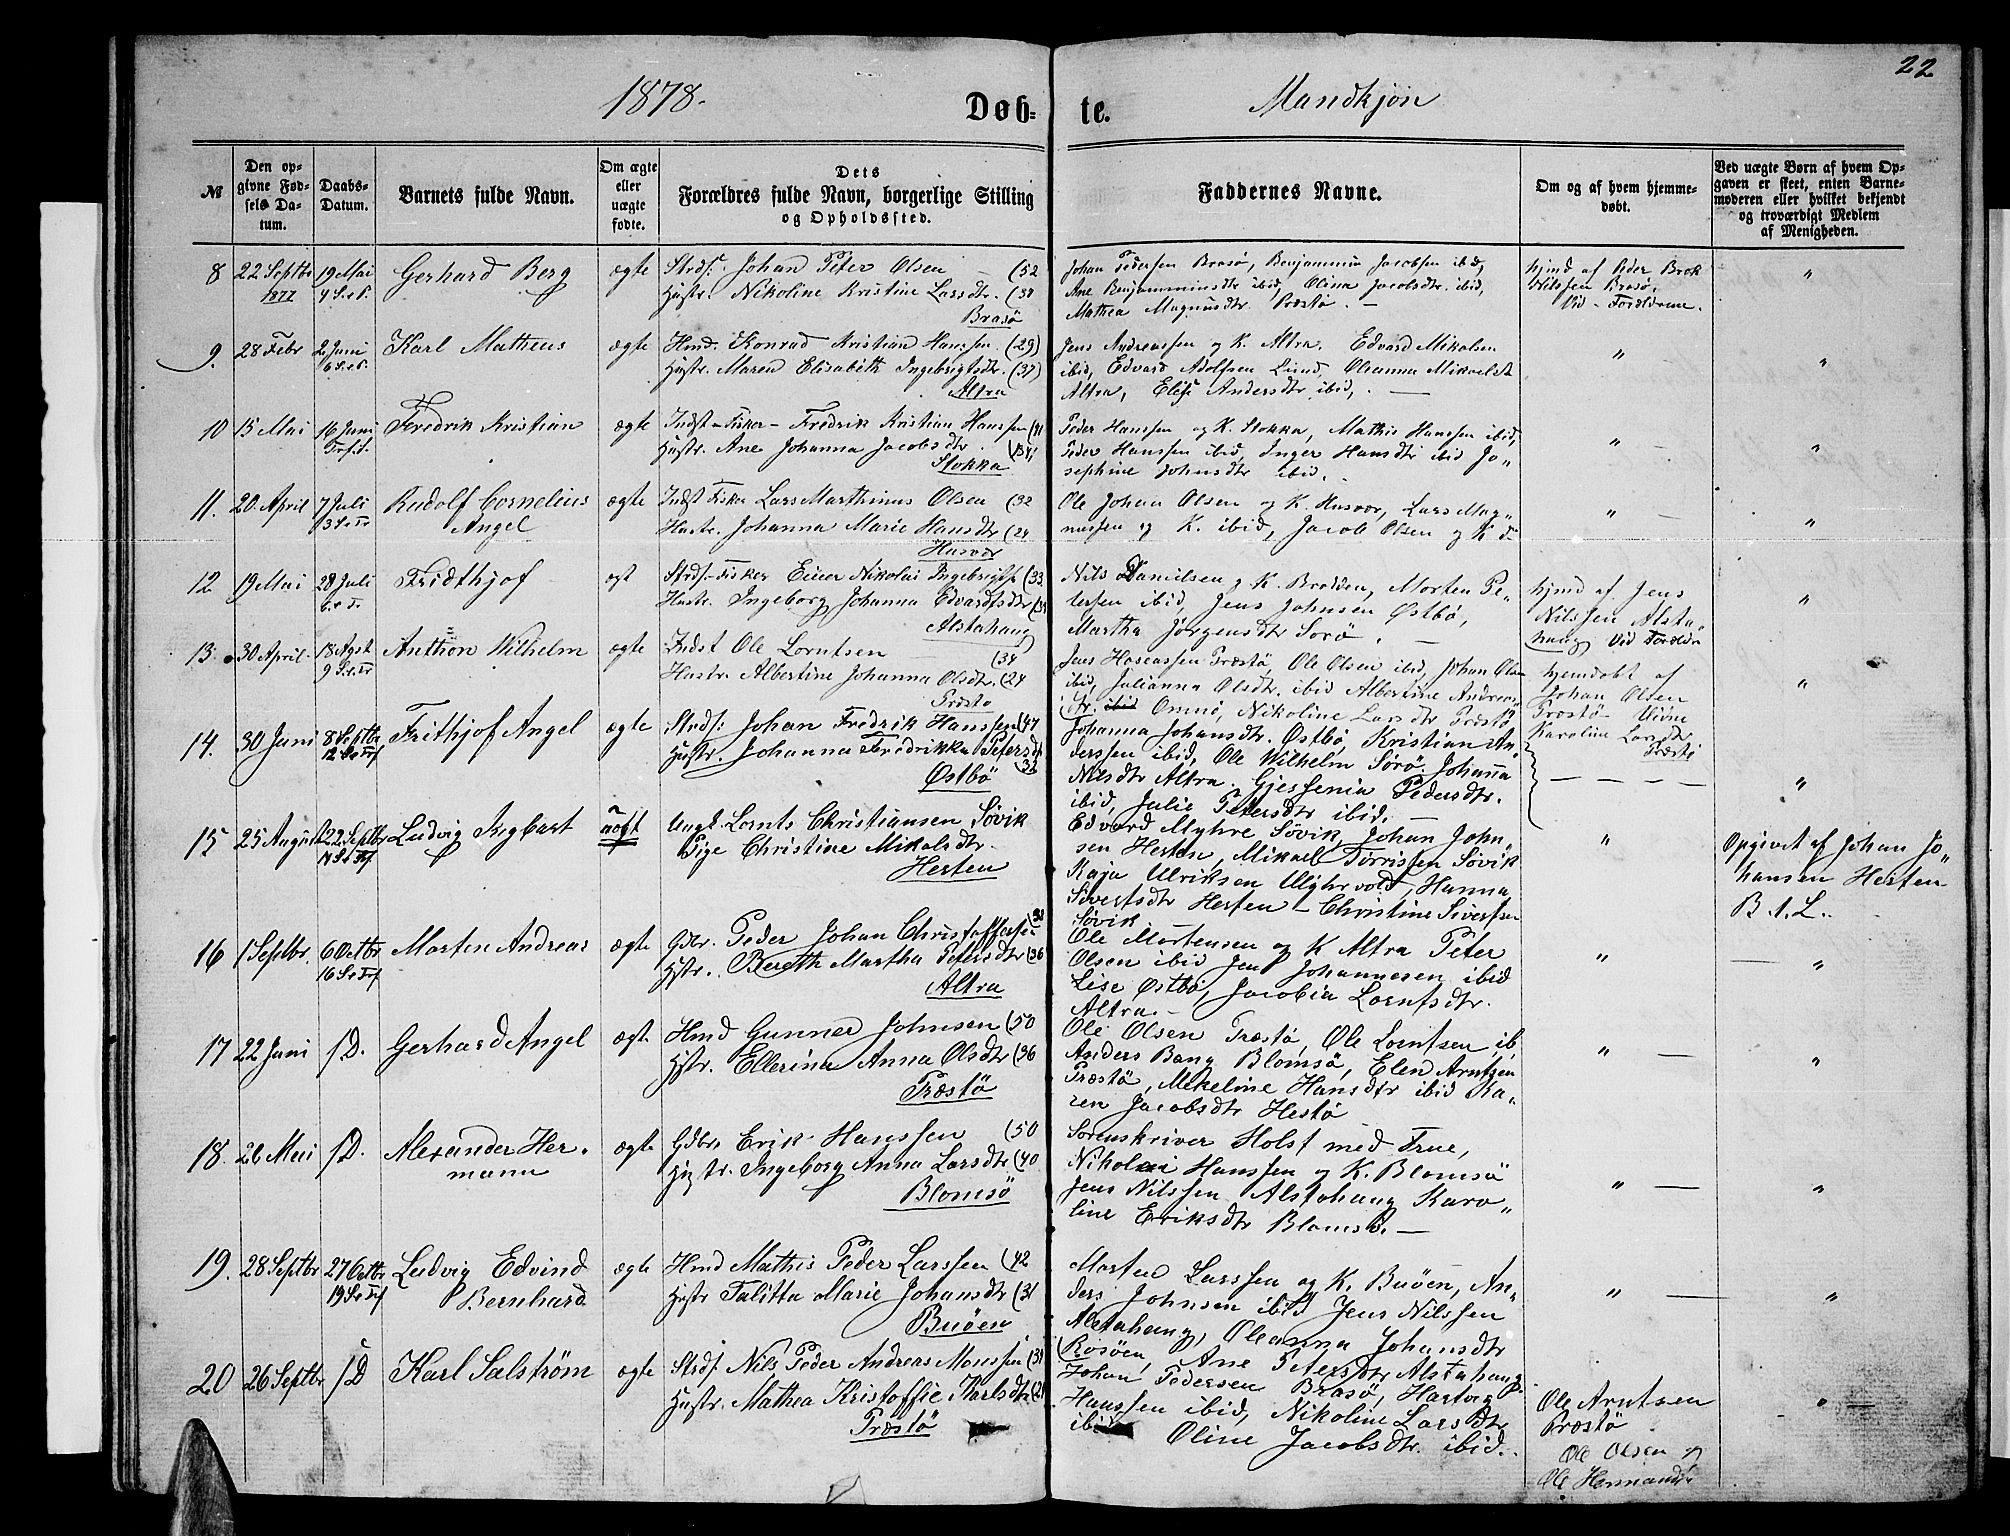 22
1878.
Døb-
te.
Mandkjøn
№
Den op-
givne Fød-
sels Da-
tum.
Daabs-
Datum.
Barnets fulde Navn.
Om ægte
eller
uægte
fødte.
Dets
Forældres fulde Navn, borgerlige Stilling
og Opholdssted.
Faddernes Navne.
Om og af hvem hjemme-
døbt.
Ved uægte Børn af hvem Op-
gaven er skeet, enten Barne-
moderen eller hvilket bekjendt
og troværdigt Medlem
af Menigheden.
8 22 Septbr 19 Mai Gerhard Berg ægte Strds. Johan Peter Olsen (52
1877 4 S.e.P. Hustr. Nikoline Kristine Larsdtr. (38
Brasø
Johan Pedersen Brasø, Benjammin Jacobsen ibid,
Ane Benjamminsdtr ibid, Olina Jacobsdtr. ibid,
Mathea Magnusdtr. Præstø. —
hjmd af Peder Brok
Nilssen Brasø.
Vid - Forældrene.
"
9. 28 Febr 2 Juni Karl Matheus ægte Hmd. Konrad Kristian Hanssen. (29)
6 S.e.P. Hustr. Maren Elisabeth Ingebrigtsdtr. (37)
Altra
Jens Andreassen og K. Altra. Edvard Mikalsen
ibid, Edvard Adolfsen Lund, Oleanna Mikaelsdt
Altra, Elise Andersdtr ibid,. —
"
"
10 15 Mai 16 Juni Fredrik Kristian ægte Indst - Fisker - Fredrik Kristian Hanssen (41
Trf.d. Hustr. Ane Johanna Jacobsdtr.
Stokka
Peder Hanssen og K. Stokka, Mathis Hanssen ibid,
Peder Hanssen ibid, Inger Hansdtr ibid Jo„
sephine Johnsdtr ibid.
" —
"
11. 20 April 7 Juli Rudolf Cornelius ægte Indst Fisker Lars Marthinus Olsen (32
3 S.e.Tr Angel Hustr. Johanna Marie Hansdtr (24
Husvær
Ole Johan Olsen og K. Husvær, Lars Mag„
nussen og K. ibid, Jacob Olsen og K d:
" —
"
12 19 Mai 28 Juli Fridthjof egt Strds. Fisker Einer Nikolai Ingebrigts. (33.
Hustr. Ingeborg Johanna Edvardsdtr
Alstahaug
Nils Danielsen og K. Bradden, Morten Pe-
tersen ibid, Jens Johnsen Østbø,
Martha Jørgensdtr Sorø. —
hjmd af. Jens
Nilssen Alsta„
haug Vid Forældr
"
13. 30 April 18 Agst Anthon Wilhelm ægte Indst Ole Lorntsen (34
9 S.e.Tr Hustr. Albertine Johanna Olsdtr. (24
Præstø
Jens Hoseassen Præstø, Ole Olsen ibid, Johan Olsen
ibid, Julianna Olsdtr. ibid Albertine Andreas„
dtr. ibid Omnø, Nikoline Larsdtr Præstø
hjemdøbt af
Johan Olsen
Præstø
Karoline Larsdtr
Præstø
"
14. 30 Juni 8 Septbr Frithjof Angel ægte Strds: Johan Fredrik Hanssen (47
12 S.e.Trf Hustr. Johanna Fredrikke Petersdt
Østbø (32
Johanna Johansdtr. Østbø, Kristian An„
derssen ibid, Ole Wilhelm Sørø Johanna
Nilsdtr Altra. Gjessenia Pedersdtr.
ibid, Julie Petersdtr ibid. —
— — — —
"
15 25 August 22 Septbr Ludvig Ingbart uægt Ungk. Lornts Christiansen Søvik
14 S.e.Trf Pige Christine Mikalsdtr.
Hesten
Edvard Myhre Søvik, Johan John„
sen Hesten, Mikael Tørrissen Søvik
Kaja Ulriksen Myhrvold, Hanna
Sivertsdtr Hesten - Christine Sivertsen
Søvik
"
Opgivet af Johan Jo„
hansen Hesten
B. 1. L.
16 1 Septbr. 6 Octbr Morten Andreas ægte Gdbr. Peder Johan Christoffersen 38
16 S.e.Trf Hstr. Bereth Martha Petersdtr (36
Altra
Ole Mortensen og K Altra Peter
Olsen ibid Jens Johannesen ibid
Lise Østbø, Jacobia Lorntsdtr.
Altra. —
" —
"
17 22 Juni S.D. Gerhard Angel ægte Hmd Gunner Johnsen (50
Hstr. Ellerina Anna Olsdtr (36
Præstø
Ole Olsen Præstø, Ole Lorntsen ib,
Anders Bang Blomsø, Elen Arntsen
Præstø, Mikeline Hansdtr ibid Ka„
ren Jacobsdtr Hestø
" —
"
18. 26 Mai S.D. Alexander Her- ægte Gdbr. Erik Hanssen (50
mann Hustr. Ingeborg Anna Larsdtr (40
Blomsø
Sorenskriver Holst med Frue,
Nikolai Hanssen og K. Blomsø
Jens Nilssen Alstahaug Karo„
line Eriksdtr Blomsø. —
" —
"
19. 28 Septbr 27 Octbr Ludvig Edvind ægte Hmd Mathis Peder Larssen (42
19 S.e.Trf Bernhard Hustr Talitta Marie Johansdtr (31
Buøen
Morten Larssen og K. Buøen, An„
ders Johnsen ibid Jens Nilssen
Alstahaug, Oleanna Johansdtr
Rosøen, Ane Petersdtr Alstahaug.
" —
"
20 26 Septbr S.D Karl Salstrøm ægte Strds. Nils Peder Andreas Monssen (31
Hustr. Mathea Kristoffie Karlsdtr (21
Præstø
Johan Pedersen Brasø, Hartvig
Hanssen ibid, Nikoline Larsdtr
ibid Oline Jacobsdtr. ibid..
Ole Arntsen
Præstø
Ole Olsen og
Ole Hermands.
" —